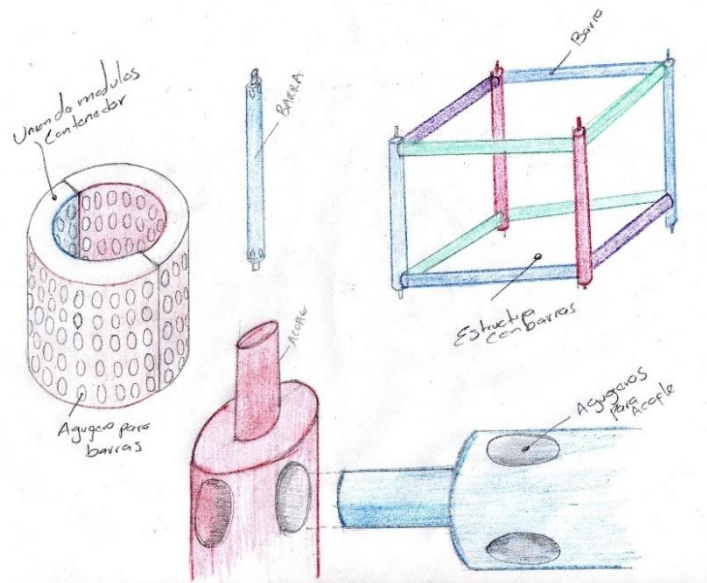 Union de modulos
Contenedor
BARRA
Barra
ACOPLE
Estructura
Con barras
Agugero para
barras
Agugeros
para Acople